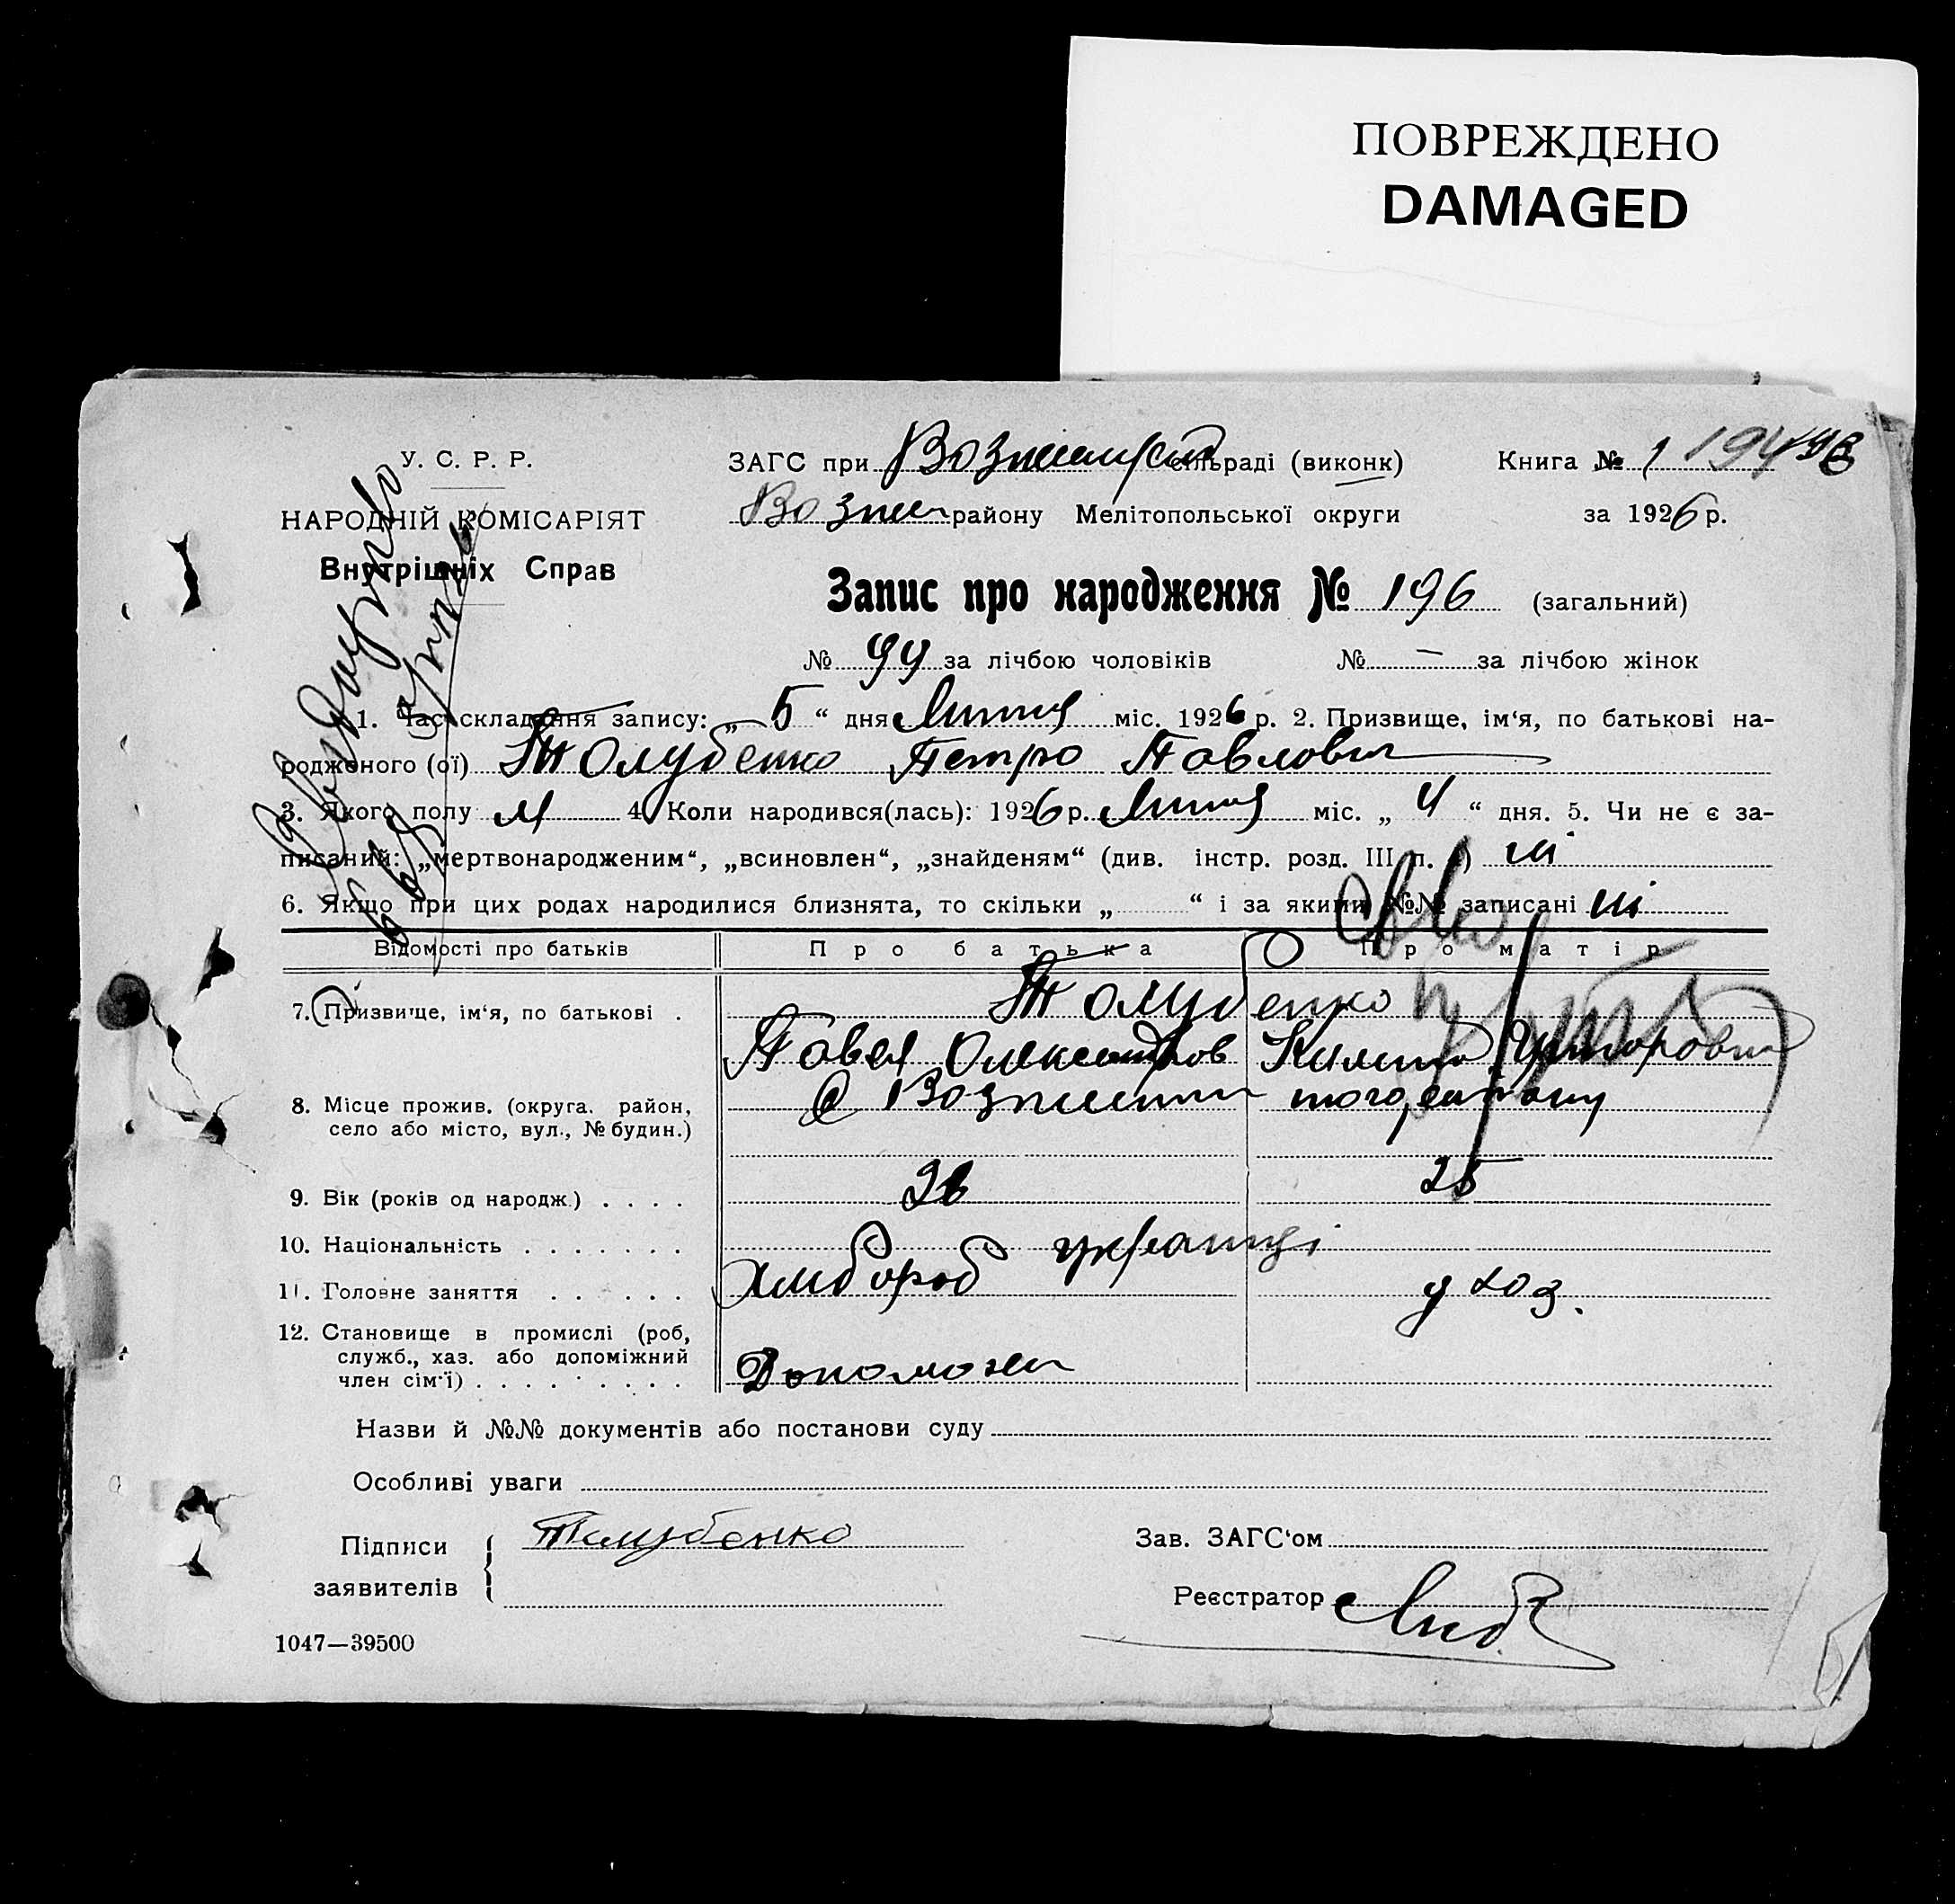 ПОВРЕЖДЕНО
DAMAGED
У. С. Р. Р.
НАРОДНІЙ КОМІСАРІЯТ
Внутрішніх Справ
ЗАГС при сільраді (виконк) Книга № 1
Вознес районy Мелітопольської округи за 1926 р.
Запис про народження № 196 (загальний)
№ 94 за лічбою чоловіків № — за лічбою жінок
1. Час складання запису: „ 5 “ дня Липня міс. 1926 р. 2. Призвище, ім‘я, по батькові на-
родженого (ої) Голубенко Петро Павлович
3. Якого полу М 4. Коли народився(лась): 1926 р. Липня міс. „ 4 “ дня. 5. Чи не є за-
писаний: „мертвонародженим“, „всиновлен“, „знайденям“ (див. інстр. розд. III п. ) ні
6. Якщо при цих родах народилися близнята, то скільки „ “ і за якими №№ записані ні
Відомості про батьків Про батька Про матір
7. Призвище, ім‘я, по батькові . Голубенко
Павел Олександров
8. Місце прожив. (округа. район,
село або місто, вул., № будин.)
9. Вік (років од народж.) . . . . 26 25
10. Національність . . . . . . . українці
11. Головне заняття . . . . . . Хлібороб
12. Становище в промислі (роб,
служб., хаз. або допоміжний
член сім‘ї) . . . . . . . . . Допоможн
Назви й №№ документів або постанови суду
Особливі уваги
Підписи Голубенко Зав. ЗАГС‘ом
заявителів Реєстратор
1047—39500